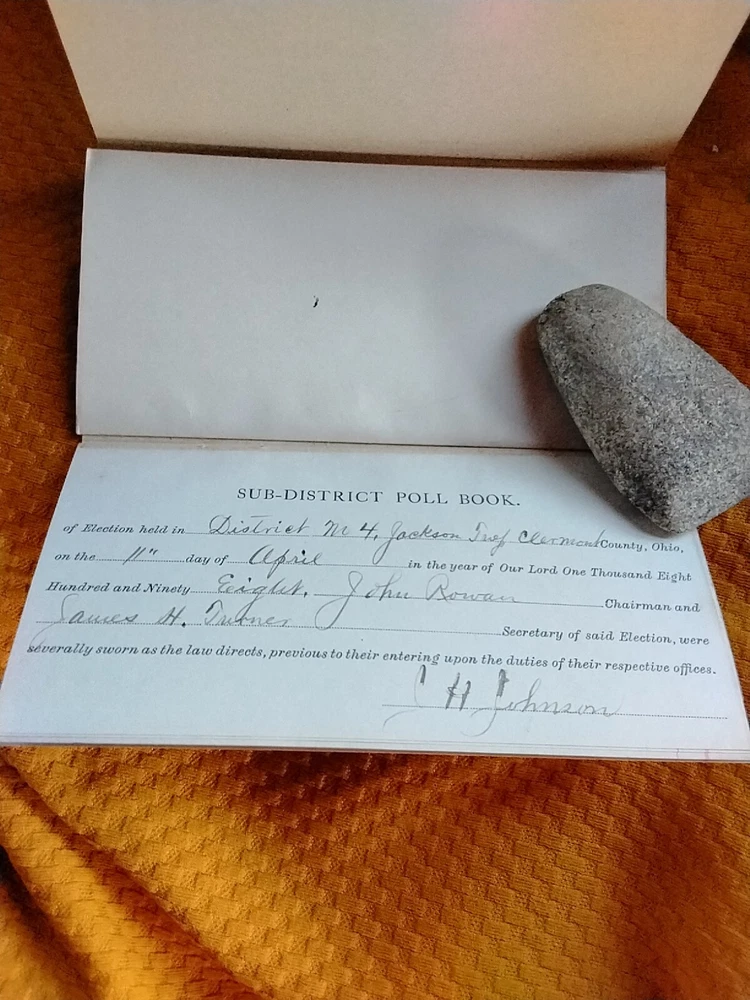 SUB-DISTRICT POLL BOOK.
of Election held in District No 4, Jackson Twp Clermont County, Ohio,
on the 11" day of April in the year of Our Lord One Thousand Eight
Hundred and Ninety Eight. John Rowan Chairman and
James H. Turner Secretary of said Election, were
severally sworn as the law directs, previous to their entering upon the duties of their respective offices.
H Johnson